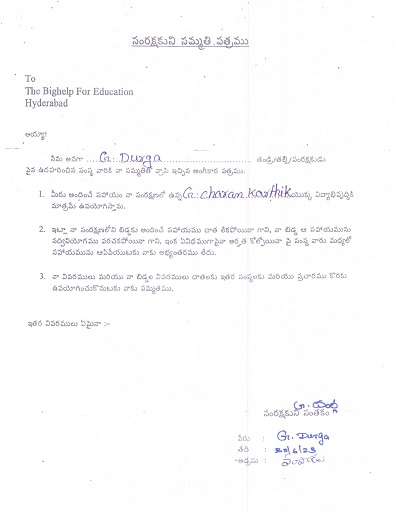 సంరక్షకుని సమ్మతి పత్రము
To
The Bighelp For Education
Hyderabad
అయ్యా!
నేను అనగా ....G. Durga.................... తండ్రి/తల్లి/సంరక్షకుడు
పైన ఉదహరించిన సంస్థ వారికి నా సమ్మతితో వ్రాసి ఇచ్చిన అంగీకార పత్రము.
1. మీరు అందించే సహాయం నా సంరక్షణలో ఉన్న G. charan karthik యొక్క విద్యాభివృద్ధికి
మాత్రమే ఉపయోగిస్తాము.
2. ఇట్లా నా సంరక్షణలోని బిడ్డకు అందించే సహాయము దాత లేకపోయినా గాని, నా బిడ్డ ఆ సహాయమును
సద్వినియోగము పరచకపోయినా గాని, ఇంక ఏవిధముగానైనా అర్హత కోల్పోయినా పై సంస్థ వారు మధ్యలో
సహాయమును ఆపివేయుటకు నాకు అభ్యంతరము లేదు.
3. నా వివరములు మరియు నా బిడ్డల వివరములు దాతలకు ఇతర సంస్థలకు మరియు ప్రచారము కొరకు
ఉపయోగించుకొనుటకు నాకు సమ్మతము.
ఇతర వివరములు ఏమైనా :-
G. దుర్గ
సంరక్షకుని సంతకం
పేరు : G. Durga
తేది : 30/6/23
అడ్రసు :